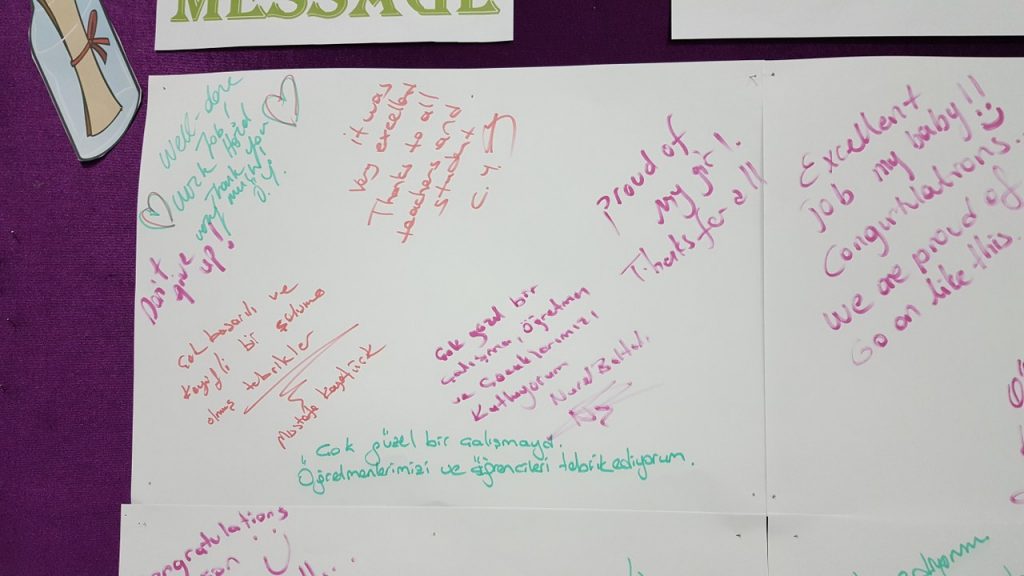 MESSAGE
Well-done
work job!
Hold
Thank you
very much
Ö.Y.
Don't
give
up!
it was
very excellent
Thanks to all
teachers and
student
C.Y.
proud of
my girl.
Thanks for all
Excellent
job my baby!!
Congurtulations..
we are proud of
Go on like this.
Çok başarılı ve
keyifli bir sunum
olmuş tebrikler
Mustafa
Çok güzel bir
çalışma, öğretmen
ve çocuklarımızı
kutluyorum
Nural
Çok güzel bir çalışmaydı.
Öğretmenlerimizi ve öğrencileri tebrik ediyorum.
ongratulations